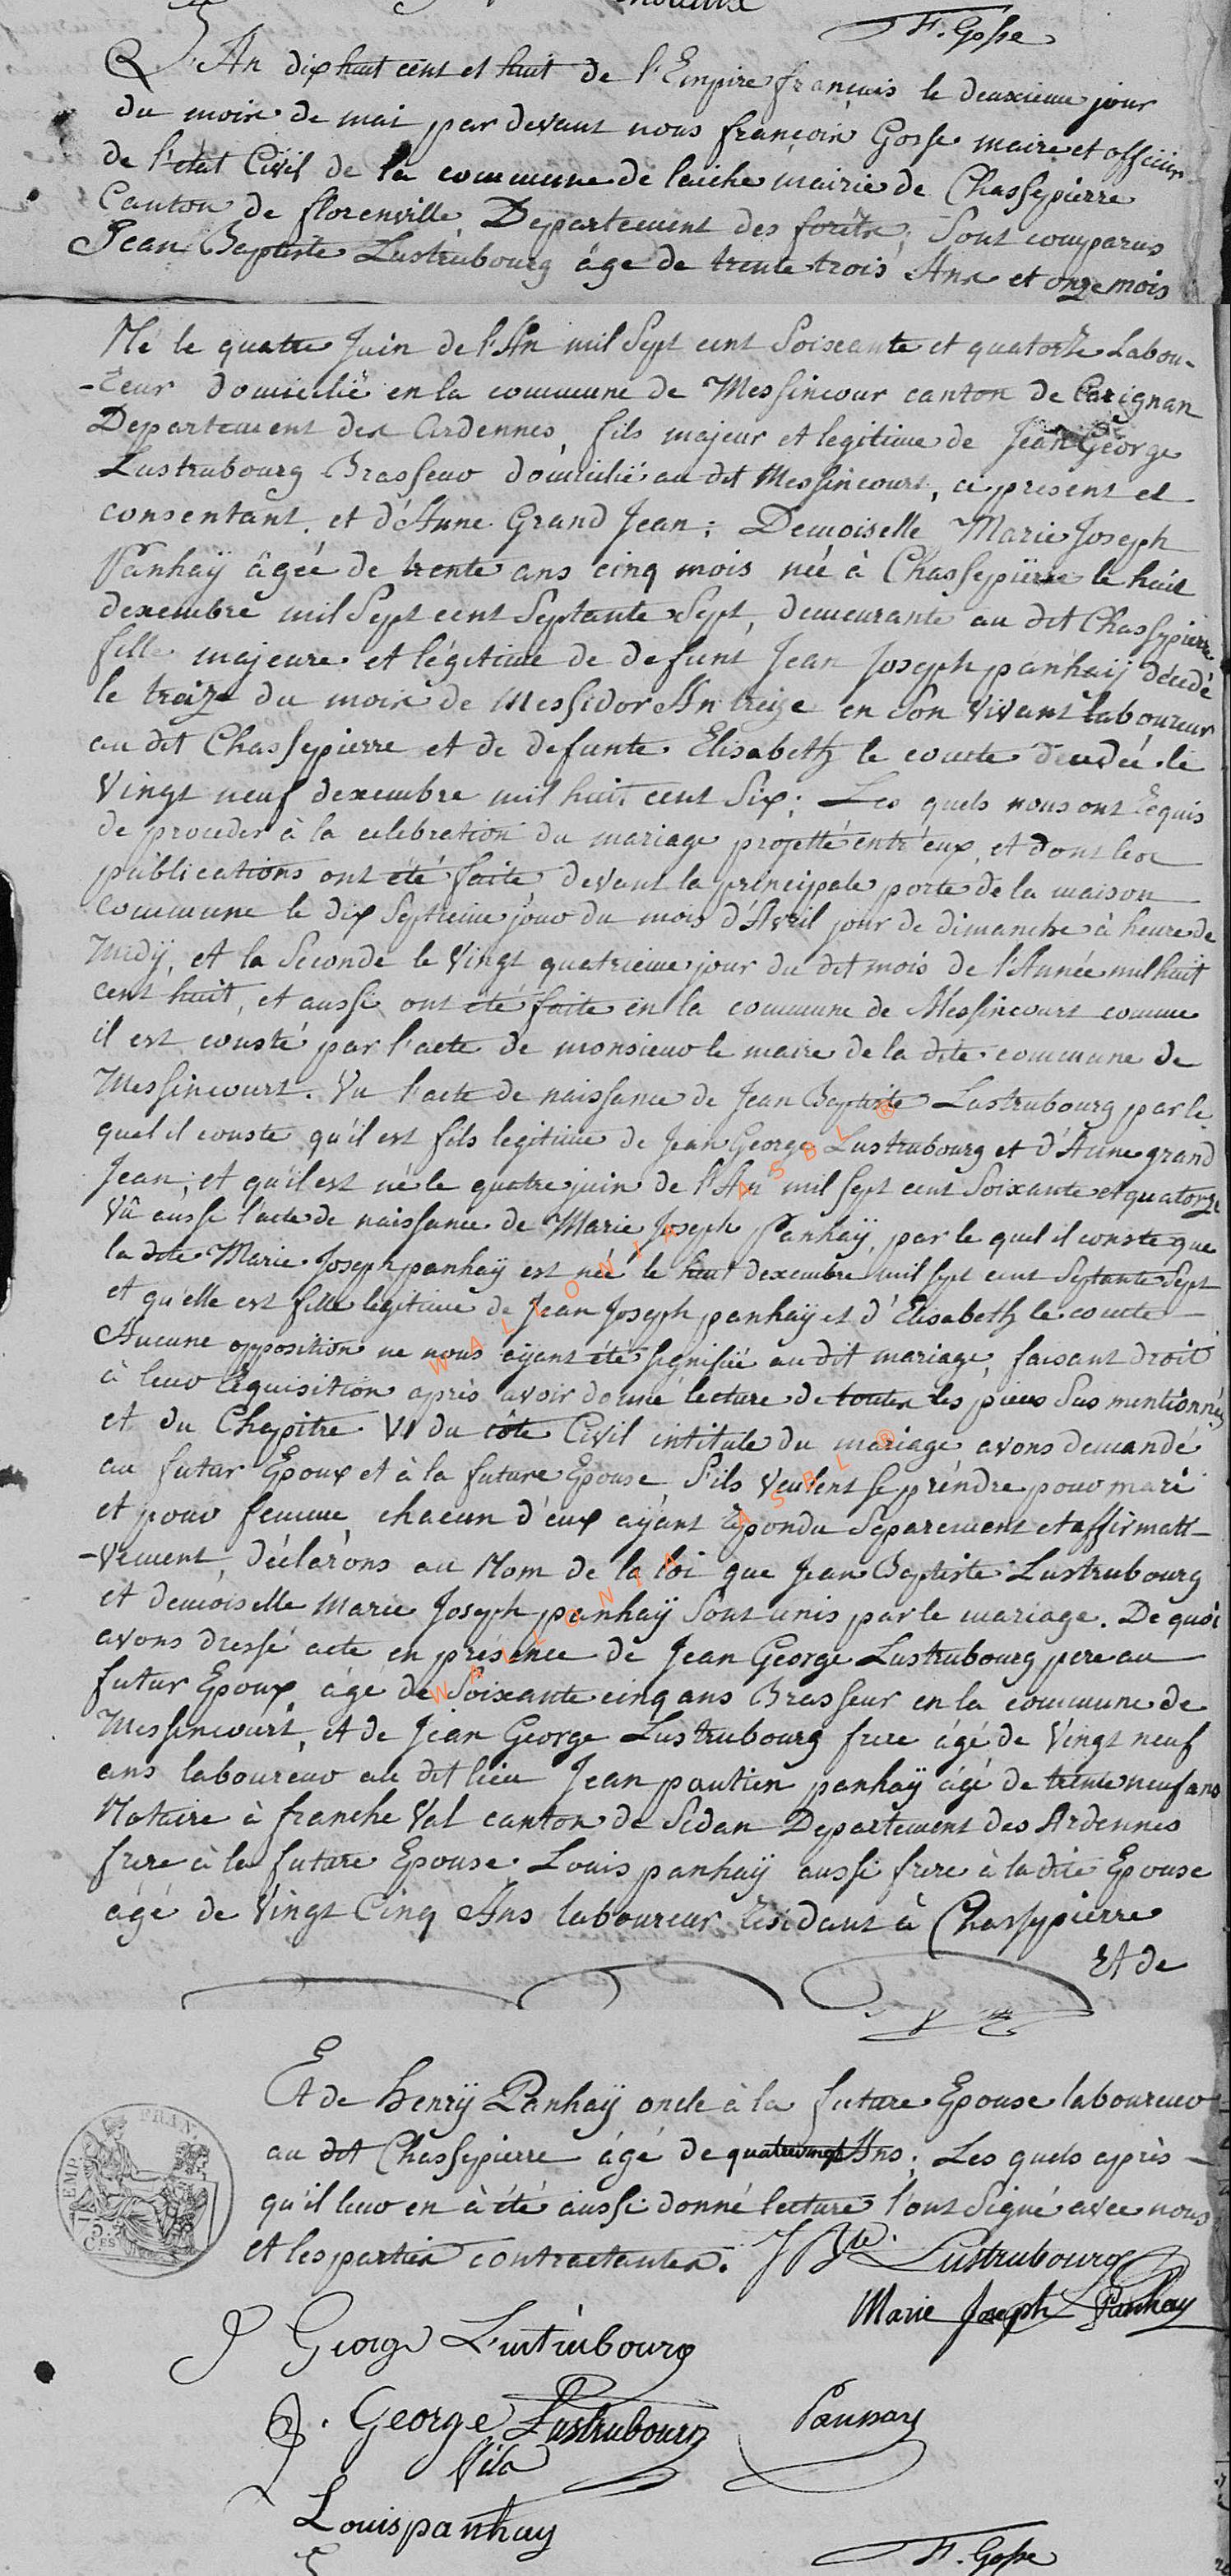 F. Gosse
L'An dix huit cent et huit de l'Empire françuis le deuxieme jour
du moix de mai par devant nous françoix Gosse maire et officiier
de l'etat Civil de la commune de laiche mairie de Chassepierre
Canton de florenville Departement des forêts, Sont comparus
Jean Baptiste Lustrubourg âge de trente trois Ans et onze mois
Né le quatre Juin de l'An mil Sept cent Soixante et quatorze Labou-
-reur domicilié en la commune de Messincour canton de Carignan
Departement des Ardennes, fils majeur et legitime de Jean George
Lustrubourg Brasseur domicilié au dit Messincourt, ci present et
consentant, et d'Anne Grand Jean; Demoiselle Marie Joseph
Panhaÿ âgée de trente ans cinq mois née à Chassepierre le huit
dexembre mil Sept cent Septante Sept, demeurante au dit Chassepierre
fille majeure et légitime de defunt Jean Joseph panhaij décedé
le treize du moix de Messidor An treize en Son Vivant laboureur
au dit Chassepierre et de defunte Elisabeth le comte decedée le
Vingt neuf dexembre mil huit cent Six; Les quels nous ont requis
de proceder à la celebration du mariage projetté entr'eux, et dont les
publications ont été faite devant la principale porte de la maison
commune le dix Septieme jour du mois d'Avril jour de dimanche à heure de
Midÿ, et la Seconde le Vingt quatrieme jour du dit mois de l'Année mil huit
cent huit, et aussi ont été faite en la commune de Messincourt comme
il est consté par l'acte de monsieur le maire de la dite commune de
Messincourt. Vu l'acte de naissance de Jean Baptiste Lustrubourg par le
quel il conste qu'il est fils legitime de Jean George Lustrubourg et d'Anne grand
Jean, et qu'il est né le quatre juin de l'An mil sept cent Soixante et quatorze
Vû aussi l'acte de naissance de Marie Joseph Panhaÿ, par le quel il conste que
la dite Marie Joseph panhaÿ est née le huit dexembre mil sept cent Septante Sept
et qu'elle est fille legitime de Jean Joseph panhaÿ et d'Elisabeth le comte
Aucune opposition ne nous aÿant été signifiée au dit mariage, faisant droit
à leur requisition après avoir donné lecture de toutes les pieces Sus mentionnés
et du Chapitre VI du côte Civil intitule du mariage avons demandé
au futur Epoux et à la future Epouse S'ils Veulent se prendre pour mari
et pour femme, chacun d'eux aÿant repondu Separement et affirmati-
-vement, déclarons au Nom de la loi que Jean Baptiste Lustrubourg
et demoiselle Marie Joseph panhaÿ Sont unis par le mariage. De quoi
avons dressé acte en présence de Jean George Lustrubourg pere au
futur Epoux, âgé de Soixante cinq ans Brasseur en la commune de
Messincourt, et de Jean George Lustrubourg frere âgé de Vingt neuf
ans laboureur au dit lieu Jean panhaÿ âgé de trente neuf ans
Notaire à franche Val canton de Sedan Departement des Ardennes
frere à la future Epouse. Louis panhaÿ aussi frere à la dite Epouse
âgé de Vingt Cinq Ans laboureur residant à Chassepierre
Et de
Et de henrÿ Panhaÿ oncle à la future Epouse laboureur
au dit Chassepierre âgé de quatrevingt Ans; Les quels après
qu'il leur en à été aussi donné lecture l'ont Signé avec nous
et les parties contractantes. J Bte Lustrubourg
Marie Joseph Panhay
J George Lustrubourg
J. George Lustrubourg Panhay
fils
Louis panhay
F. Gosse
EMP. FRAN.
75 Ces
WALLONIA ASBL ®
WALLONIA ASBL ®